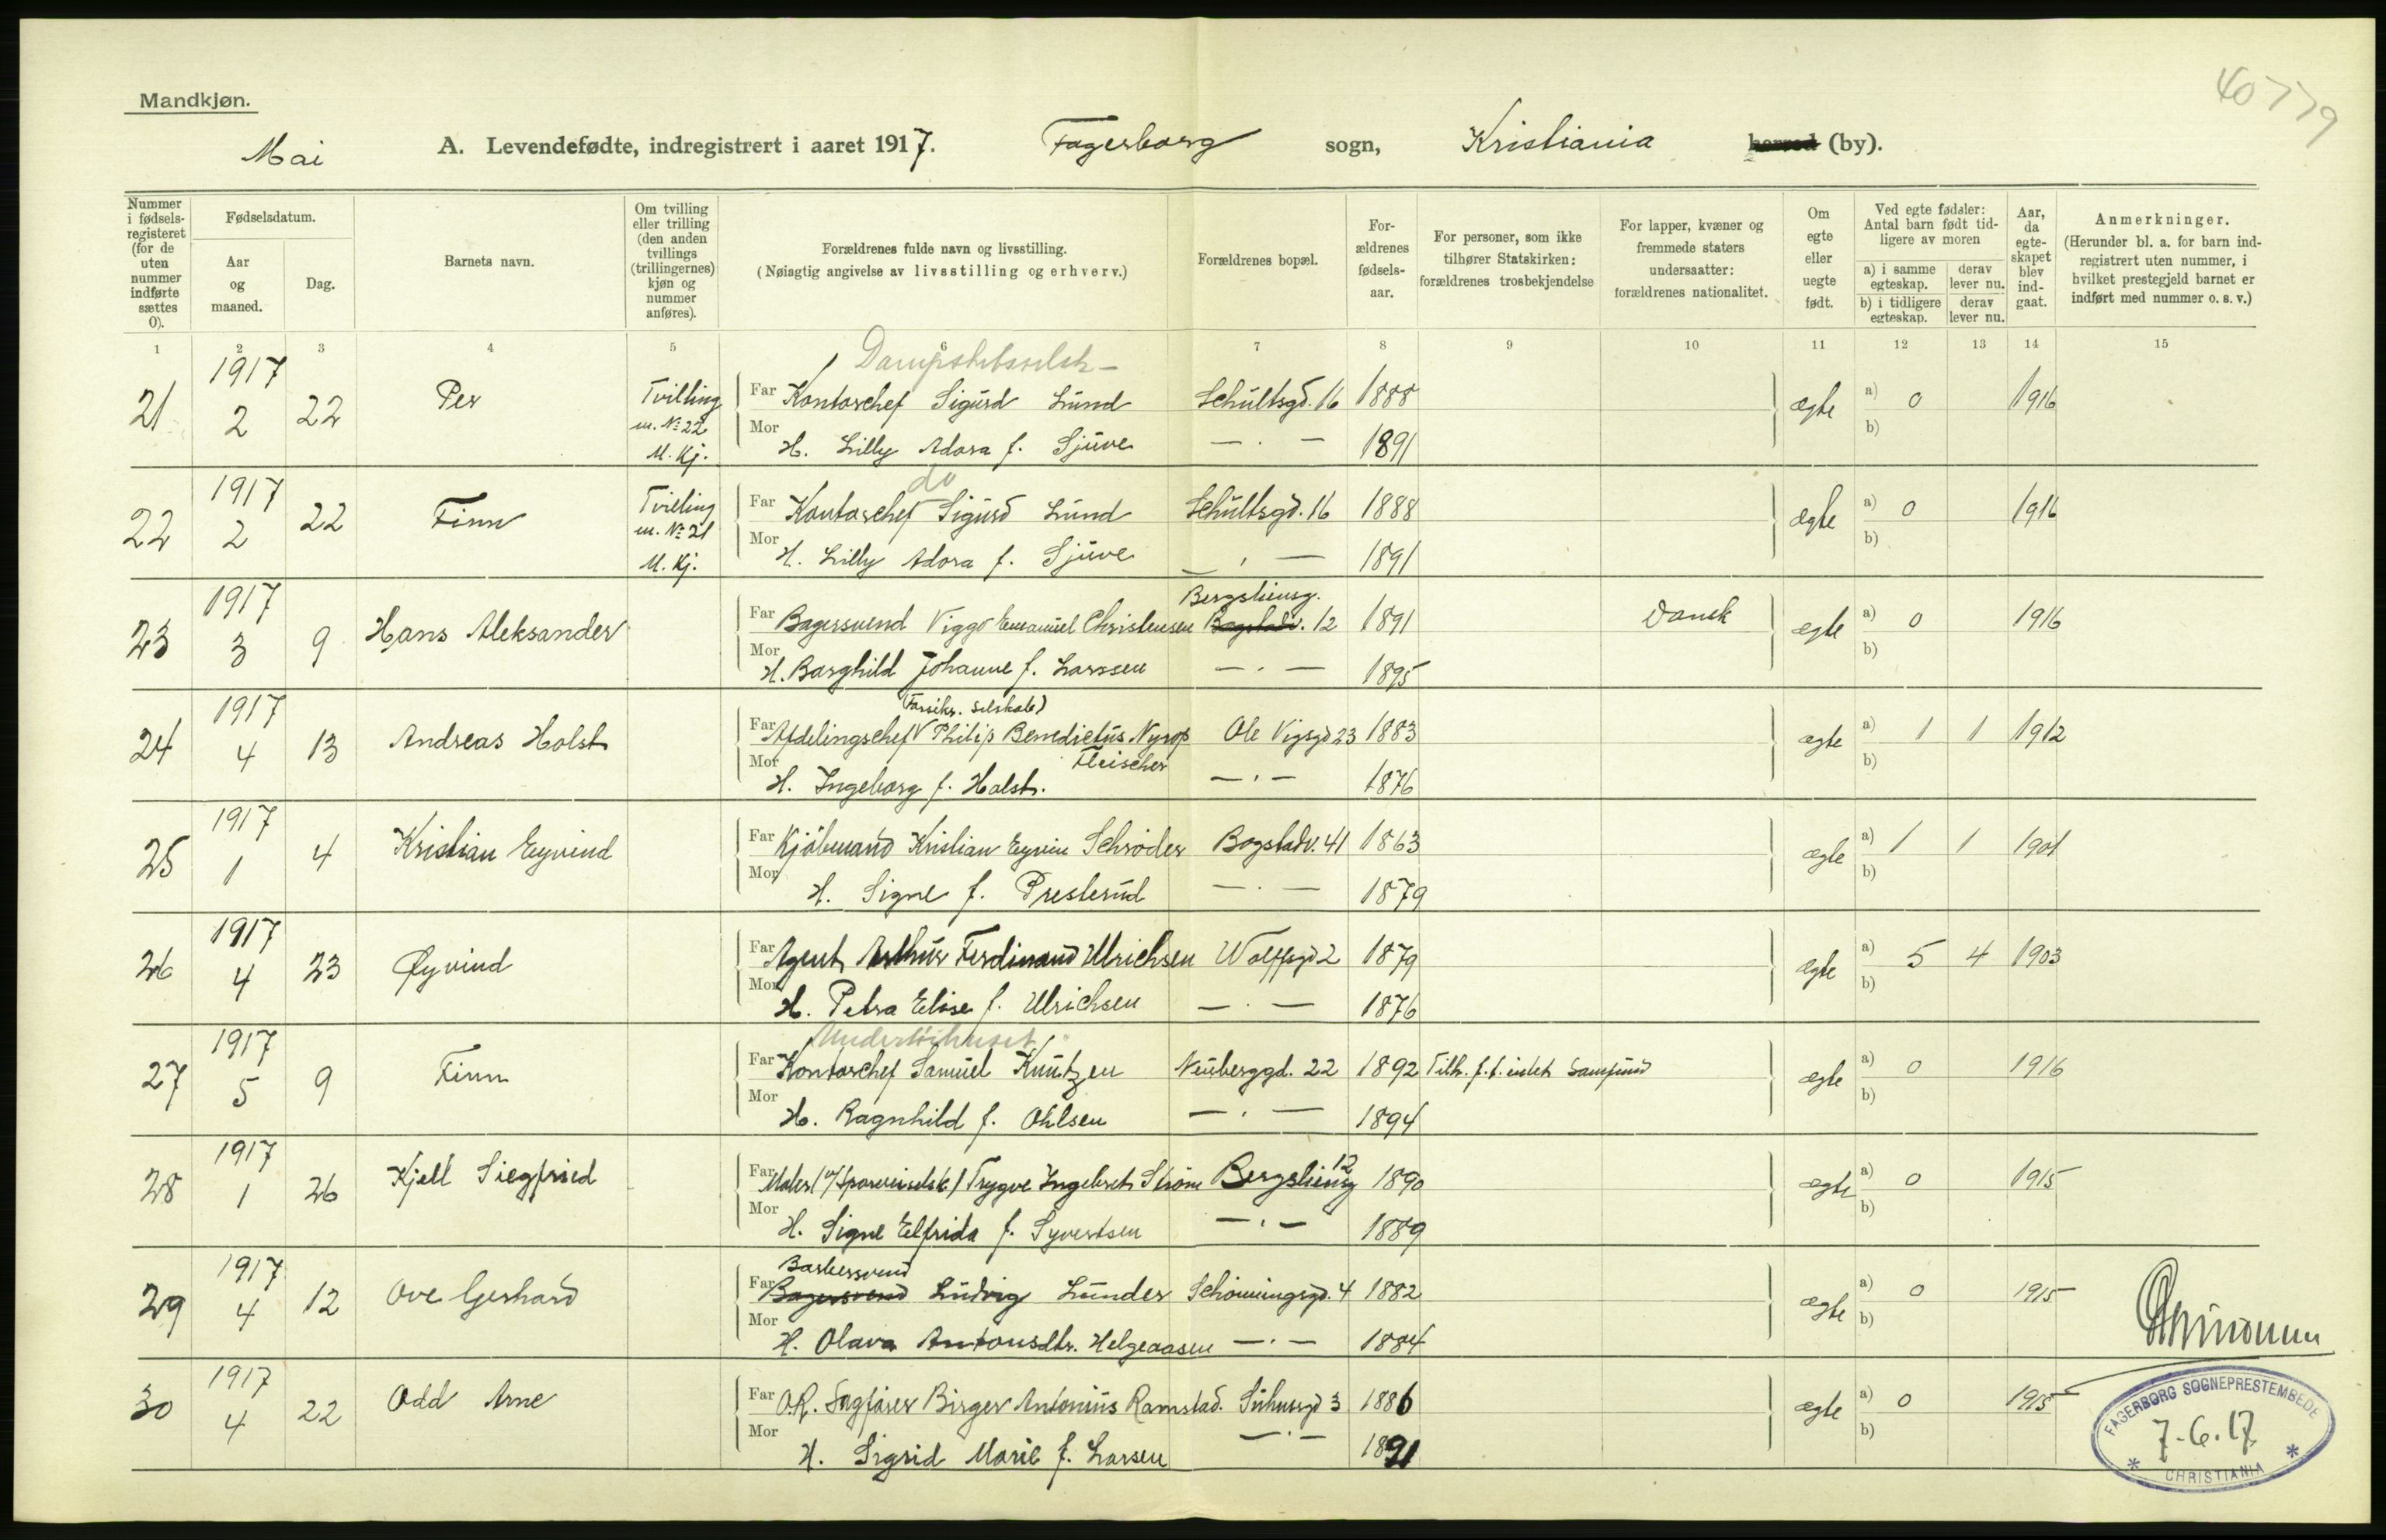 40779
Mandkjøn.
Mai A. Levendefødte, indregistrert i aaret 1917. Fagerborg sogn, Kristiania herred (by).
Nummer i fødselsregisteret (for de uten nummer indførte sættes 0).
Fødselsdatum.
Aar og maaned.
Dag.
Barnets navn.
Om tvilling eller trilling (den anden tvillings (trillingernes) kjøn og nummer anføres).
Forældrenes fulde navn og livsstilling.
(Nøiagtig angivelse av livsstilling og erhverv.)
Forældrenes bopæl.
Forældrenes fødselsaar.
For personer, som ikke tilhører Statskirken: forældrenes trosbekjendelse
For lapper, kvæner og fremmede staters undersaatter: forældrenes nationalitet.
Om egte eller uegte født.
Ved egte fødsler: Antal barn født tidligere av moren
a) i samme egteskap. derav lever nu.
b) i tidligere egteskap. derav lever nu.
Aar, da egteskapet blev indgaat.
Anmerkninger.
(Herunder bl. a. for barn indregistrert uten nummer, i hvilket prestegjeld barnet er indført med nummer o. s. v.)
1 2 3 4 5 6 7 8 9 10 11 12 13 14 15
Dampskibsselsk.
21 1917 2 22 Per Tvilling m. № 22 M. Kj. Far Kontorchef Sigurd Lund Schultsgd. 16 1888 egte a) 0 1916
Mor H. Lilly Adora f. Sjuve — . — 1891 b)
do
22 1917 2 22 Finn Tvilling m. № 21 M. Kj. Far Kontorchef Sigurd Lund Schultsgd. 16 1888 egte a) 0 1916
Mor H. Lilly Adora f. Sjuve — . — 1891 b)
Bergsliensg.
23 1917 3 9 Hans Aleksander Far Bagersvend Viggo Emanuel Christensen Bogstadv. 12 1891 Dansk egte a) 0 1916
Mor H. Borghild Johanne f. Larssen — . — 1895 b)
(Forsikr. selskab)
24 1917 4 13 Andreas Holst Far Afdelingschef Philip Benedictus Nyrop Fleischer Ole Vigsgd 23 1883 egte a) 1 1 1912
Mor H. Ingeborg f. Holst. — . — 1876 b)
25 1917 1 4 Kristian Eyvind Far Kjøbmand Kristian Eyvin Schrøder Bogstadv. 41 1863 egte a) 1 1 1901
Mor H. Signe f. Presterud — . — 1879 b)
26 1917 4 23 Øyvind Far Agent Arthur Ferdinand Ulrichsen Wolffsgd 2 1879 egte a) 5 4 1903
Mor H. Petra Elise f. Ulrichsen — . — 1876 b)
27 1917 5 9 Finn Far Kontorchef Samuel Knutzen Neuberggd. 22 1892 Tilh. f. t. intet Samfund egte a) 0 1916
Mor H. Ragnhild f. Ohlsen — . — 1894 b)
28 1917 1 26 Kjell Siegfried Far Maler (v/Sporveiselsk.) Trygve Ingebret Strøm Bergsliensg 12 1890 egte a) 0 1915
Mor H. Signe Elfrida f. Syvertsen — . — 1889 b)
Barbersvend
29 1917 4 12 Ove Gerhard Far Bagersvend Ludvig Lunder Schøningsgd. 4 1882 egte a) 0 1915
Mor H. Olava Antonsdtr. Helgeaasen — . — 1884 b)
30 1917 4 22 Odd Arne Far O.R. Sagfører Birger Antonius Ramstad. Suhmsgd 3 1886 egte a) 0 1915
Mor H. Sigrid Marie f. Larsen — . — 1891 b)
FAGERBORG SOGNEPRESTEMBEDE
7-6.17
* CHRISTIANIA *